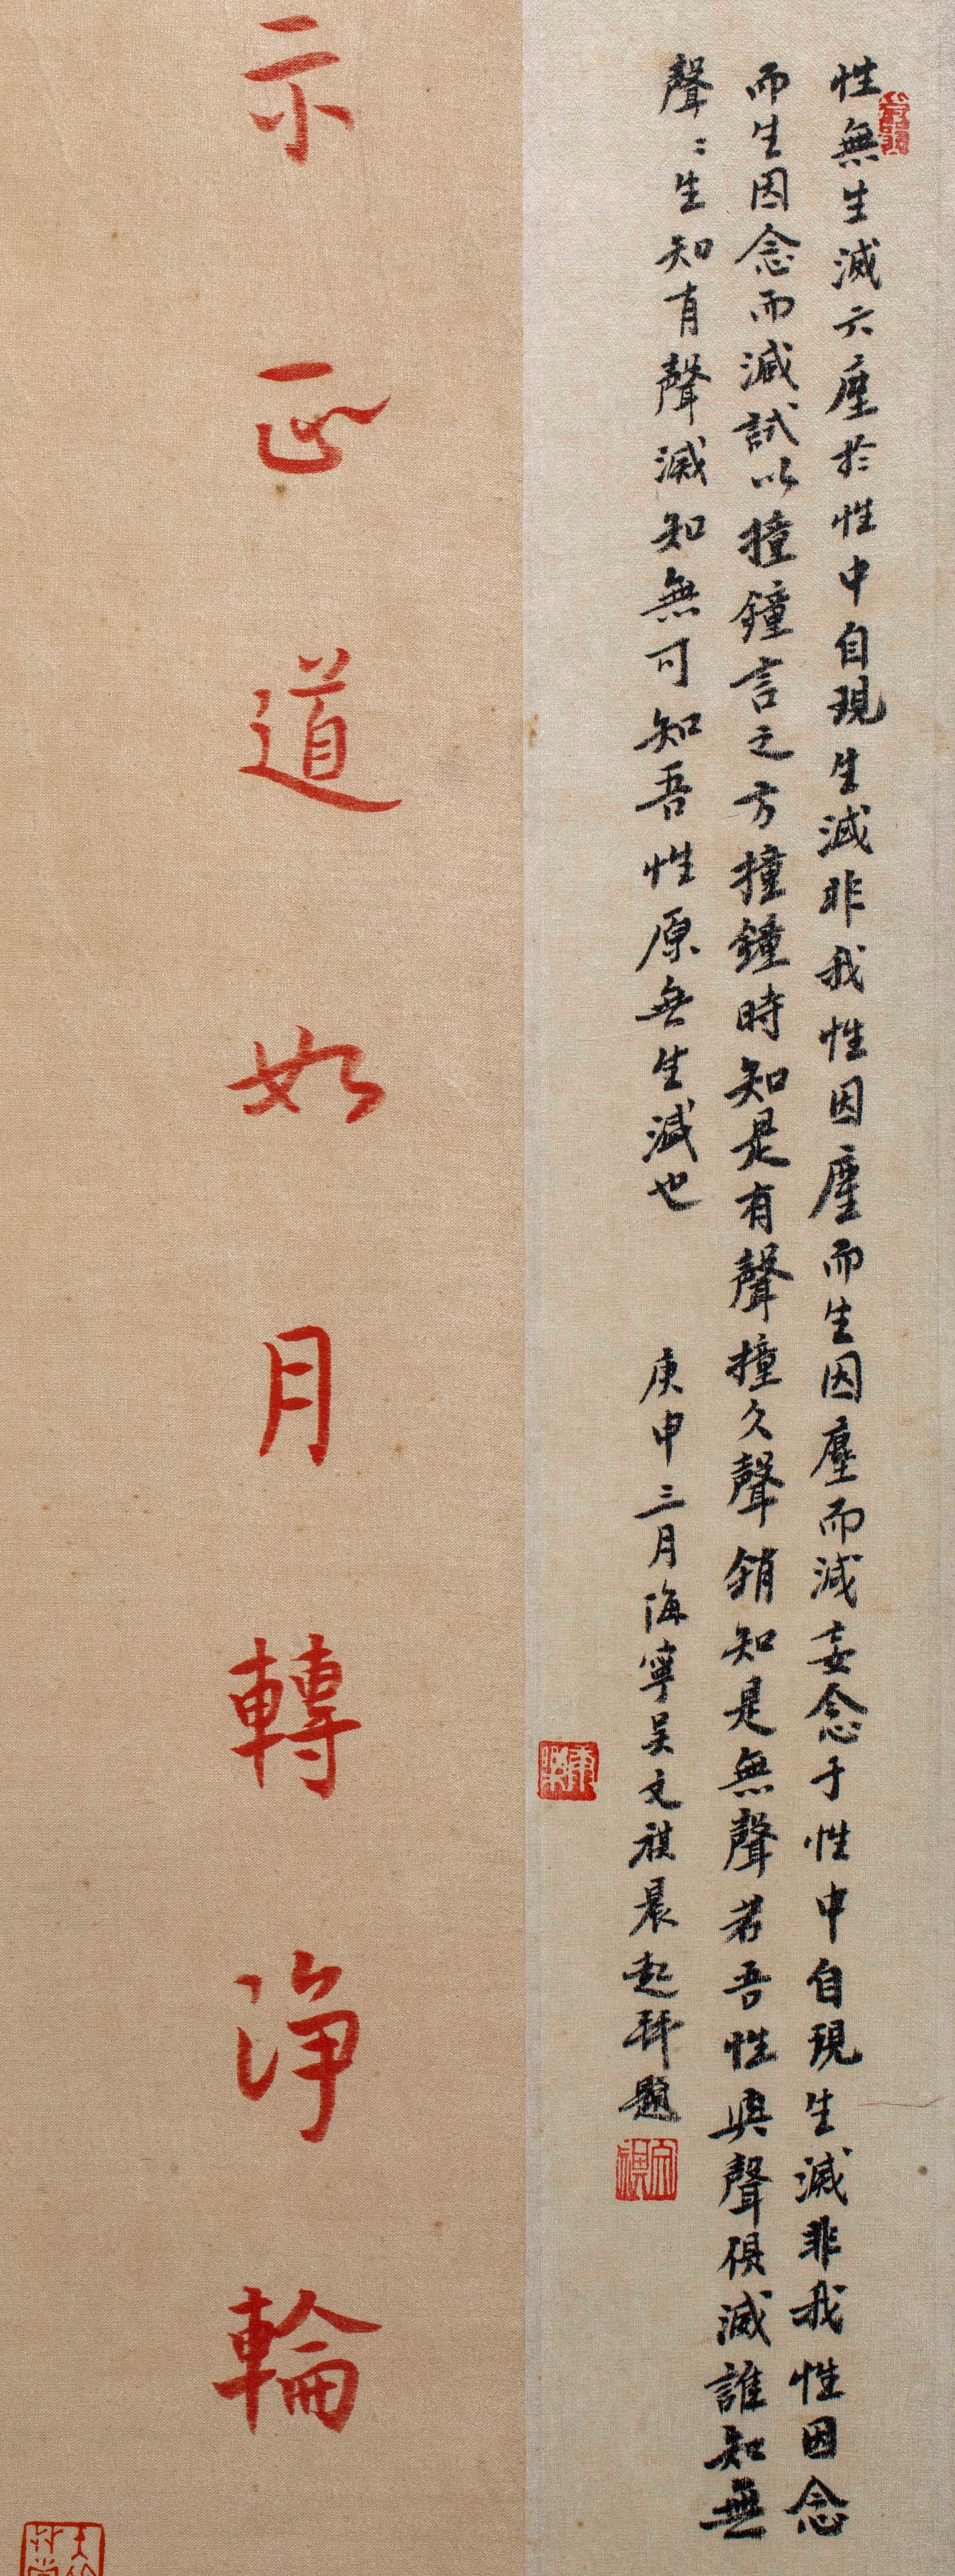 性無生滅六塵於性中自現生滅非我性因塵而生因塵而滅妄念于性中自現生滅非我性因念
而生因念而滅試以撞鐘言之方撞鐘時知是有聲撞久聲銷知是無聲若吾性與聲俱滅誰知無
聲〻生知有聲滅知無可知吾性原無生滅也
庚申三月海寧吴文祺晨起拜題
示正道如月轉淨輪